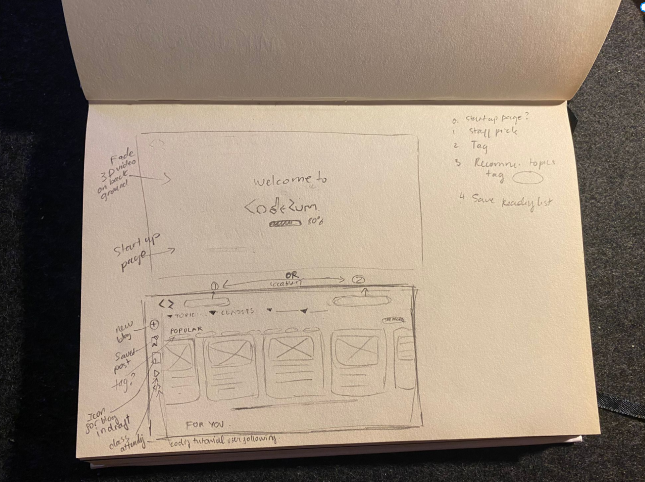 0 Start up page?
1 Staff pick
2 Tag
3 Recomme. topics
tag
4 Save Reading list
Fade
3D video
on back
ground
welcome to
80%
Start up
page
OR
1
2
< >
TOPIC
POPULAR
new
blog
Saved
post
tag?
Icon
for blog
in draft
class
FOR YOU
tutorial
following